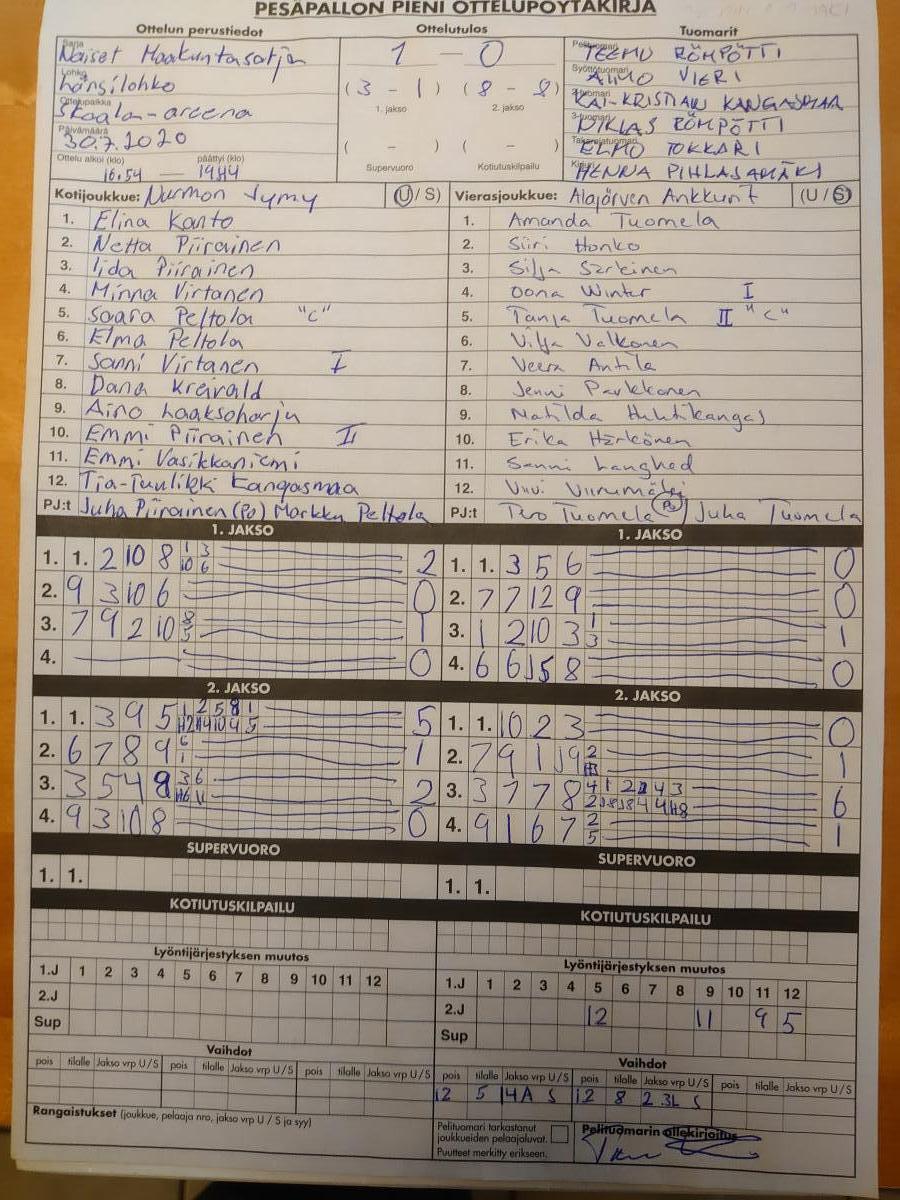 PESÄPALLON PIENI OTTELUPÖYTÄKIRJA
Ottelun perustiedot Ottelutulos Tuomarit
Sarja Naiset Maakuntasarja
Lohko Länsilohko
Ottelupaikka Skaala-areena
Päivämäärä 30.7.2020
Ottelu alkoi (klo) päättyi (klo)
16.54 — 1944
1 — 0
(3 - 1) (8 - 8)
1. jakso 2. jakso
( - ) ( - )
Supervuoro Kotiutuskilpailu
Pelituomari TEEMU RÖMPÖTTI
Syöttötuomari AIMO VIERI
2-tuomari KAI-KRISTIAN KANGASMAA
3-tuomari NIKLAS RÖMPÖTTI
Takarajatuomari ELMO TOKKARI
Kirjuri HENNA PIHLAJAMÄKI
Kotijoukkue: Nurmon Jymy (U / S) Vierasjoukkue: Alajärven Ankkurit (U / S)
1. Elina Kanto 1. Amanda Tuomela
2. Netta Piirainen 2. Siiri Honko
3. Iida Piirainen 3. Silja Särkinen
4. Minna Virtanen 4. Oona Winter I
5. Saara Peltola "C" 5. Tanja Tuomela II "C"
6. Elma Peltola 6. Vilja Valkonen
7. Sanni Virtanen I 7. Veera Antila
8. Dana Kreivald 8. Jenni Parkkonen
9. Aino Laaksoharju 9. Matilda Huhtikangas
10. Emmi Piirainen II 10. Erika Härkönen
11. Emmi Vasikkaniemi 11. Sanni Langhed
12. Tia-Tuulikki Kangasmaa 12. Viivi Viinamäki
PJ:t Juha Piirainen (Po) Markku Peltola PJ:t Tero Tuomela Po Juha Tuomela
1. JAKSO 1. JAKSO
1. 1. 2 10 8 1 3 2 1. 1. 3 5 6 0
10 6
2. 9 3 10 6 0 2. 7 7 12 9 0
3. 7 9 2 10 8 1 3. 1 2 10 3 1 1
5 3
4. 0 4. 6 6 5 8 0
2. JAKSO 2. JAKSO
1. 1. 3 9 5 1 2 5 8 1 5 1. 1. 10 2 3 0
2. 6 7 8 9 6 1 2. 7 9 1 9 2 1
1
3. 3 5 4 8 3 6 2 3. 3 7 7 8 4 1 2 4 3 6
4. 9 3 10 8 0 4. 9 1 6 7 2 1
5
SUPERVUORO SUPERVUORO
1. 1. 1. 1.
KOTIUTUSKILPAILU KOTIUTUSKILPAILU
Lyöntijärjestyksen muutos Lyöntijärjestyksen muutos
1.J 1 2 3 4 5 6 7 8 9 10 11 12 1.J 1 2 3 4 5 6 7 8 9 10 11 12
2.J 2.J 12 11 9 5
Sup Sup
Vaihdot Vaihdot
pois tilalle Jakso vrp U / S pois tilalle Jakso vrp U / S pois tilalle Jakso vrp U / S pois tilalle Jakso vrp U / S pois tilalle Jakso vrp U / S pois tilalle Jakso vrp U / S
12 5 1 4A S 12 8 2 3L S
Rangaistukset (joukkue, pelaaja nro, jakso vrp U / S ja syy)
Pelituomari tarkastanut
joukkueiden pelaajaluvat.
Puutteet merkitty erikseen.
Pelituomarin allekirjoitus